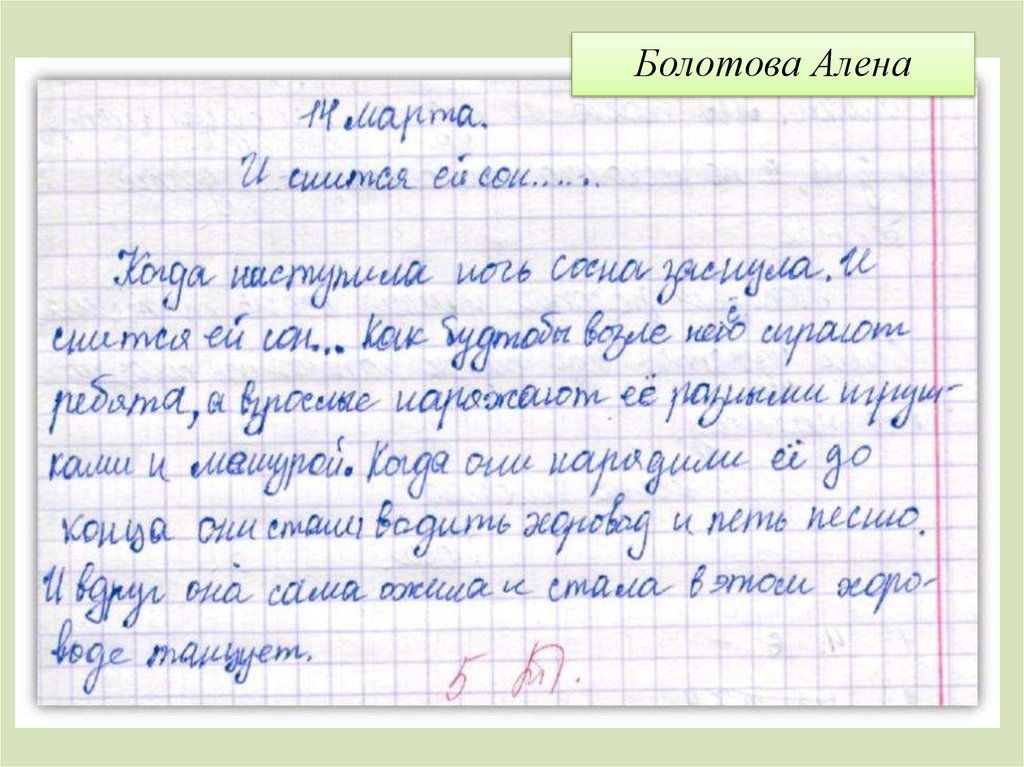 Болотова Алена
14 марта.
И снится ей сон......
Когда наступила ночь сосна заснула. И
снится ей сон... Как будтобы возле неё играют
ребята, а взрослые наряжают её разными игруш-
ками и мишурой. Когда они нарядили её до
конца они стали водить хоровод и петь песню.
И вдруг она сама ожила и стала в этом хоро-
воде танцует.
5 П.